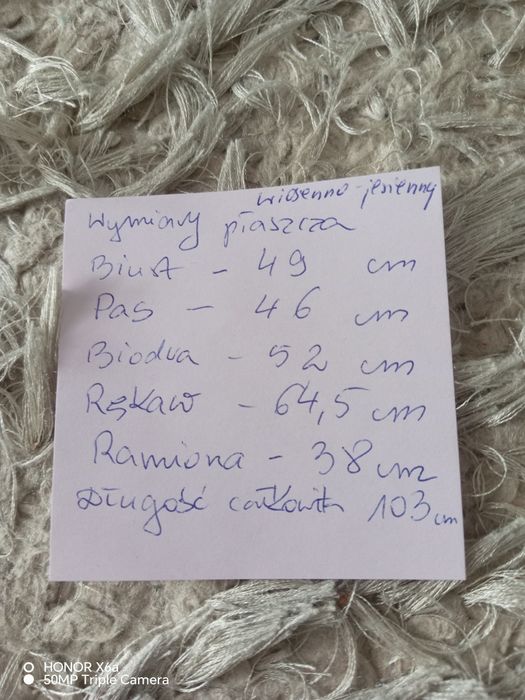 wiosenno-jesienny
Wymiary płaszcza
Biust - 49 cm
Pas - 46 cm
Biodra - 52 cm
Rękaw - 64,5 cm
Ramiona - 38 cm
Długość całkowita 103 cm
HONOR X6a
50MP Triple Camera